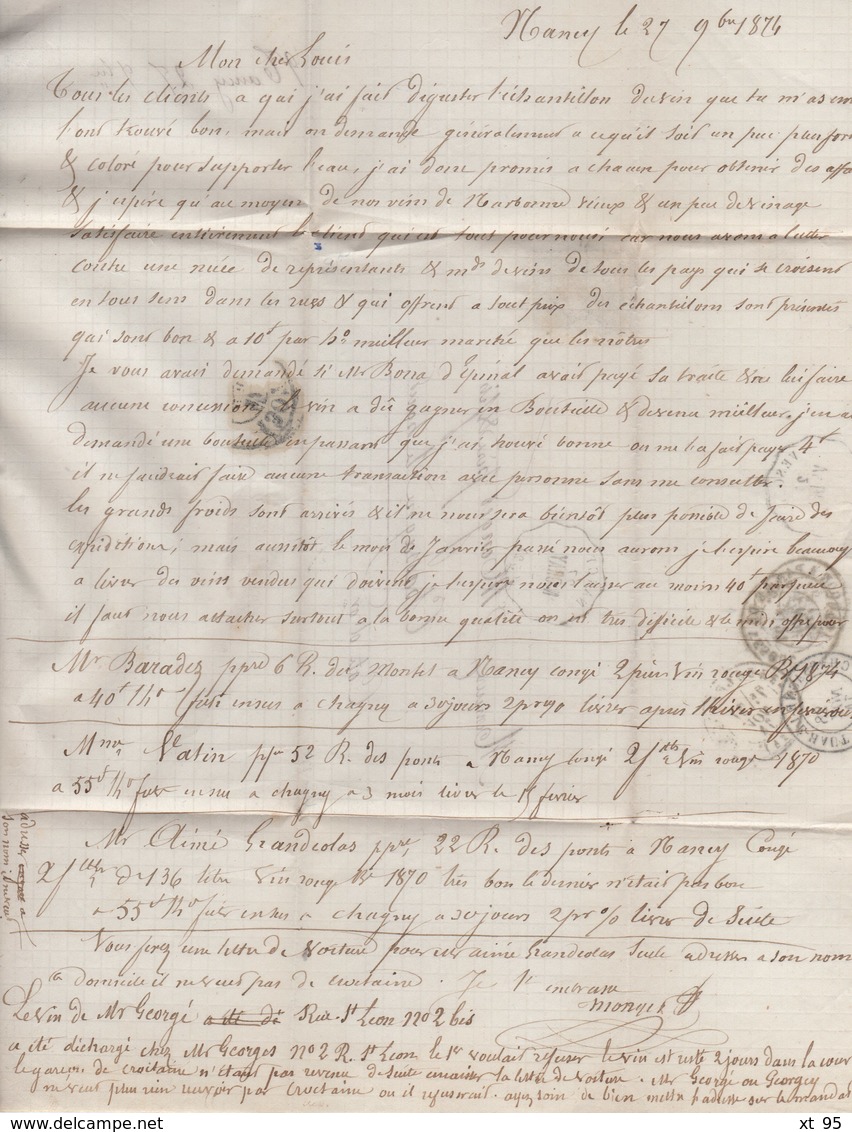 Nancy le 27 9bre 1874
Mon cher Louis
Tous les clients a qui j'ai fait déguster l'échantillon du vin que tu m'as en
l'ont trouvé bon, mais on demande généralement a ce qu'il soit un peu plus for
& coloré pour supporter l'eau, j'ai donc promis a chacun pour obtenir des affa
& j'espère qu'au moyen de nos vins de Narbonne vieux & un peu de vinage
satisfaire entièrement le client qui est tout pour nous car nous avons a lutter
contre une nuée de représentants & mds de vins de tous les pays qui se croisent
en tous sens dans les rues & qui offrent a tout prix des échantillons sont présentés
qui sont bon & a 10f par ho meilleur marché que les nôtres
Je vous avais demandé si Mr Bona d'Épinal avait payé sa traite & ne lui faire
aucune concession le vin a dû gagner en Bouteille & devenu meilleur, j'en ai
demandé une bouteille en passant que j'ai trouvé bonne on me l'a fait payer 4f
il ne faudrait faire aucune transaction avec personne sans me consulter.
les grands froids sont arrivés & il ne nous sera bientôt plus possible de faire des
expéditions; mais aussitôt le mois de Janvier passé nous aurons je l'espère beaucoup
a livrer des vins vendus qui doivent je l'espère nous laisser au moins 40f par pièce
il faut nous attacher surtout a la bonne qualité on est très difficile & le midi offre pour
Mr Baradez ppre 6 R. du Montet a Nancy congé 2 pièces vin rouge 1874
a 40f ho futs en sus a chagny a 30 jours 2 pr % livrer apres l'hiver en
Mme Vatin ppre 52 R. des ponts a Nancy congé 2/ vin rouge 1870
a 55f ho futs en sus a chagny a 3 mois livrer le 15 fevrier
Mr Aimé Grandcolas ppre, 22 R. des ponts à Nancy Congé
2/ de 136 litre vin rouge 1870 très bon le dernier n'était pas bon
a 55f ho futs en sus a chagny a 30 jours 2 pr % livrer de suite
adresser a
son nom il ne veut
Vous ferez une lettre de voiture pour Mr aimé Grandcolas seule adresser a son nom
a domicile il ne veut pas de Croctaine. Je t'embrasse
Le vin de Mr Georgé Rue St Leon No 2 bis
a été déchargé chez Mr Georges No 2 R. St Leon le 1er voulait refuser le vin est resté 2 jours dans la cour
le garçon de croctaine n'étant pas revenu de suite encaisser la lettre de voiture. Mr Georgé ou Georgey
ne veut plus rien recevoir par Croctaine ou il refuserait. ayez soin de bien mettre l'adresse sur le mandat
xt 95